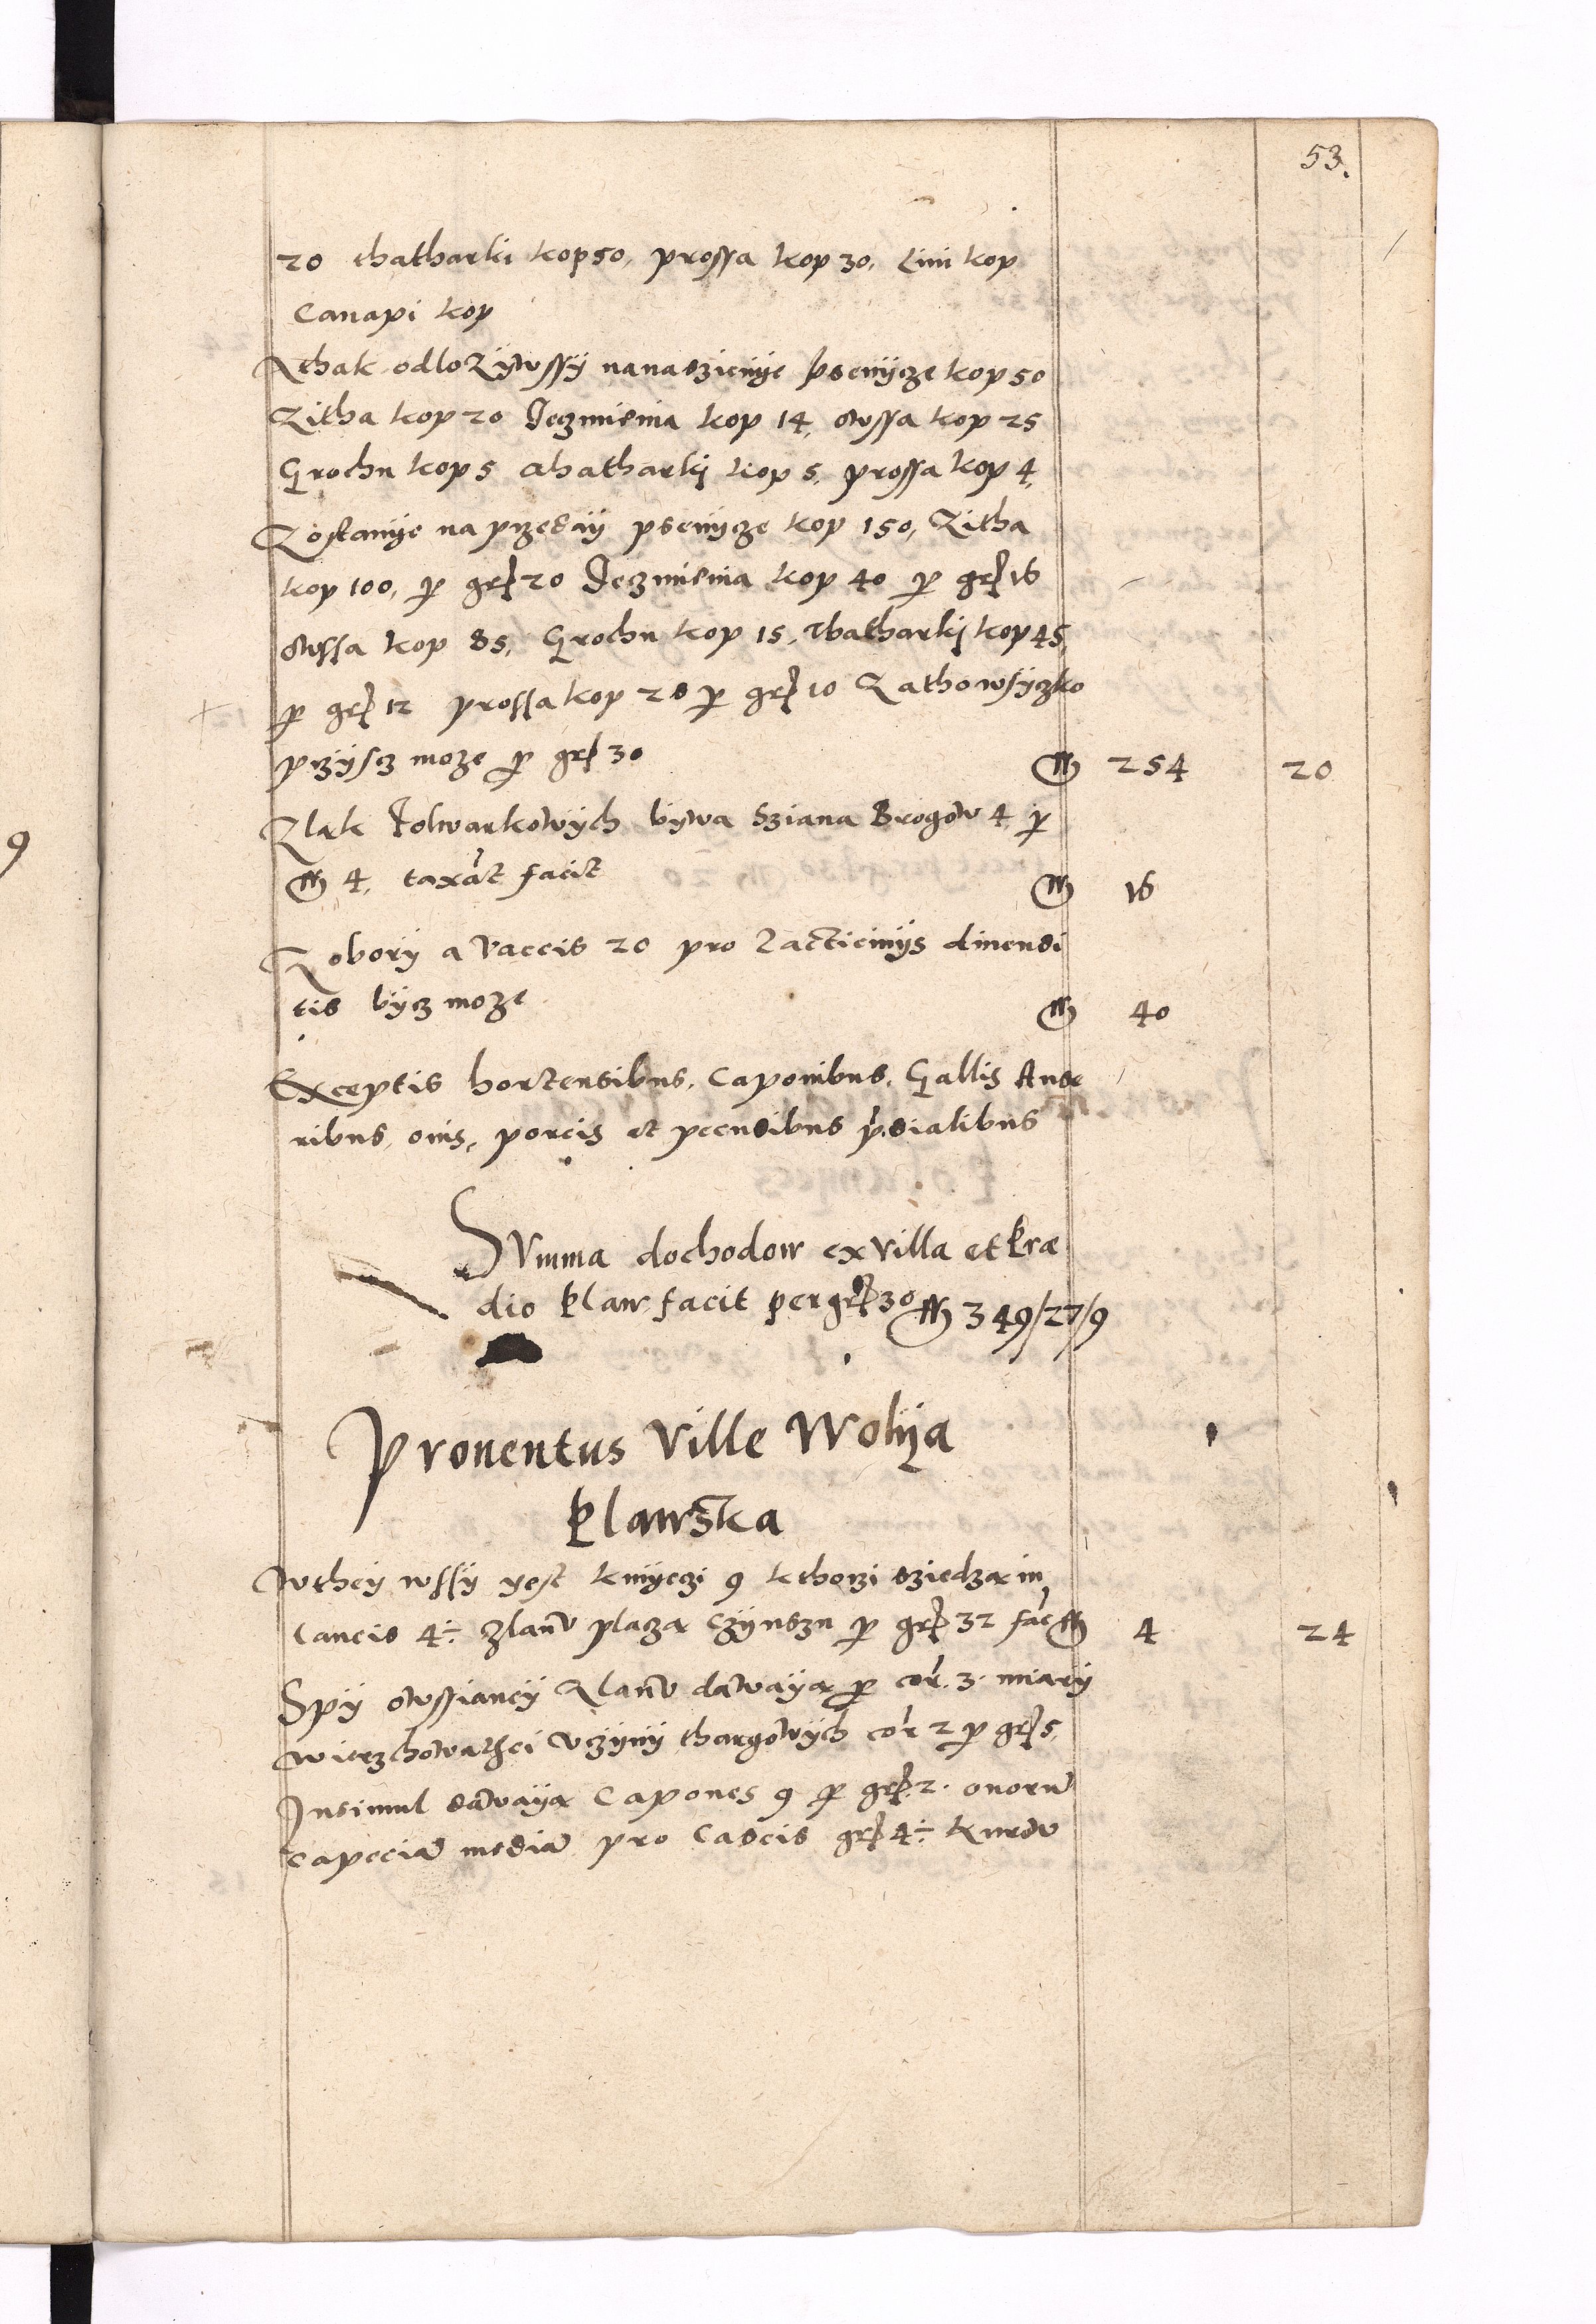 53.
20 thatharki kop 50, prossa kop 30, Lini kop
Canapi kop
Athak odlozÿwssÿ nanaszienÿe psenÿcze kop 50
Zitha kop 20 Jeczmienia kop 14, owssa kop 25
Grochu kop 5 thatharkj kop 5, prossa kop 4,
Zostanÿe na przedaÿ psenÿcze kop 150, Zitha
kop 100, per gr 20 Jeczmienia kop 40 per gr 16
owssa kop 85, Grochu kop 15, thatharkj kop 45,
per gr 12 prossa kop 26 per gr 10 Zathowsÿczko
przÿscz moze per gr 30 254 20
Zlak Folwarkowÿch bÿwa Sziana Brogow 4 per
4, taxat facit 16
Z oborÿ a vaccis 20 pro Lacticinÿs diuendi
tis bÿcz moze 40
Exceptis hortensibus, Caponibus, Gallis Anse
ribus, ouis, porcis et pecudibus p.dialibus
Summa dochodow ex villa et Prae
dio Klaw facit per gr 30 349/27/9
Prouentus Ville Wolÿa
Klawska
Wtheÿ wssÿ yest kmyeczi 9 kthorzi sziedza in
Laneis 4÷ Zlanu placza czÿnszu per gr 32 fac 4 24
Spÿ owssianeÿ Zlanu dawaÿa per cor. 3. miarÿ
wierzchowathei vczÿnÿ thargowÿch cor 2 per gr 5,
Insimul dawaÿa Capones 9 per gr 2. ouoru
capecia media pro Caseis gr 4÷ kurdw